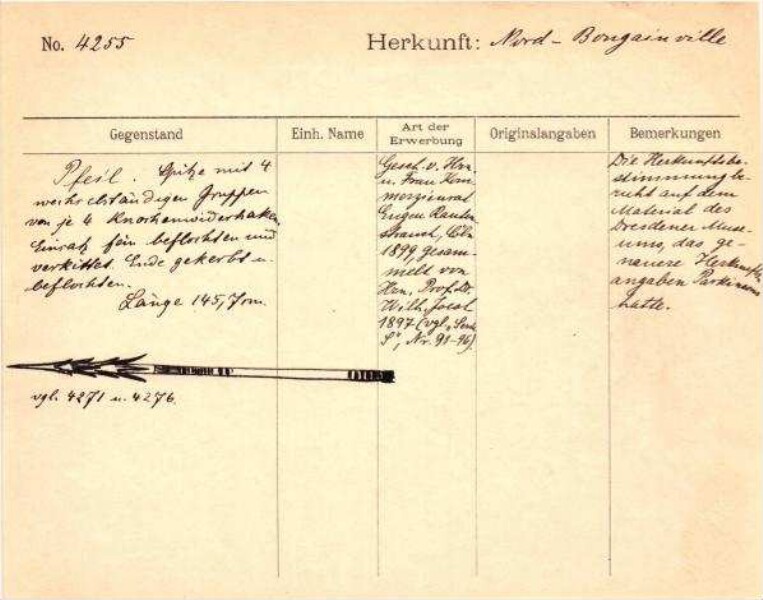 No. 4255
Herkunft: Nord-Bougainville
Gegenstand
Einh. Name
Art der
Erwerbung
Originalangaben
Bemerkungen
Pfeil. Spitze mit 4
wechselständigen Gruppen
von je 4 Knochenwiderhaken,
Einsatz fein beflochten und
verkittet. Ende gekerbt u.
beflochten.
Länge 145,7 cm.
vgl. 4271 u. 4276.
Gesch. v. Hrn.
u. Frau Kom
merzienrat
Eugen Rauten
strauch, Cöln
1899, gesam-
melt von
Hrn. Prof. Dr.
Wilh. Joest
1897 (vgl.
S", Nr. 91-96)
Die Herkunftsbe-
stimmung be-
ruht auf dem
Material des
Dresdener Muse-
ums, das ge-
nauere Herkunfts
angaben Parkinsons
hatte.